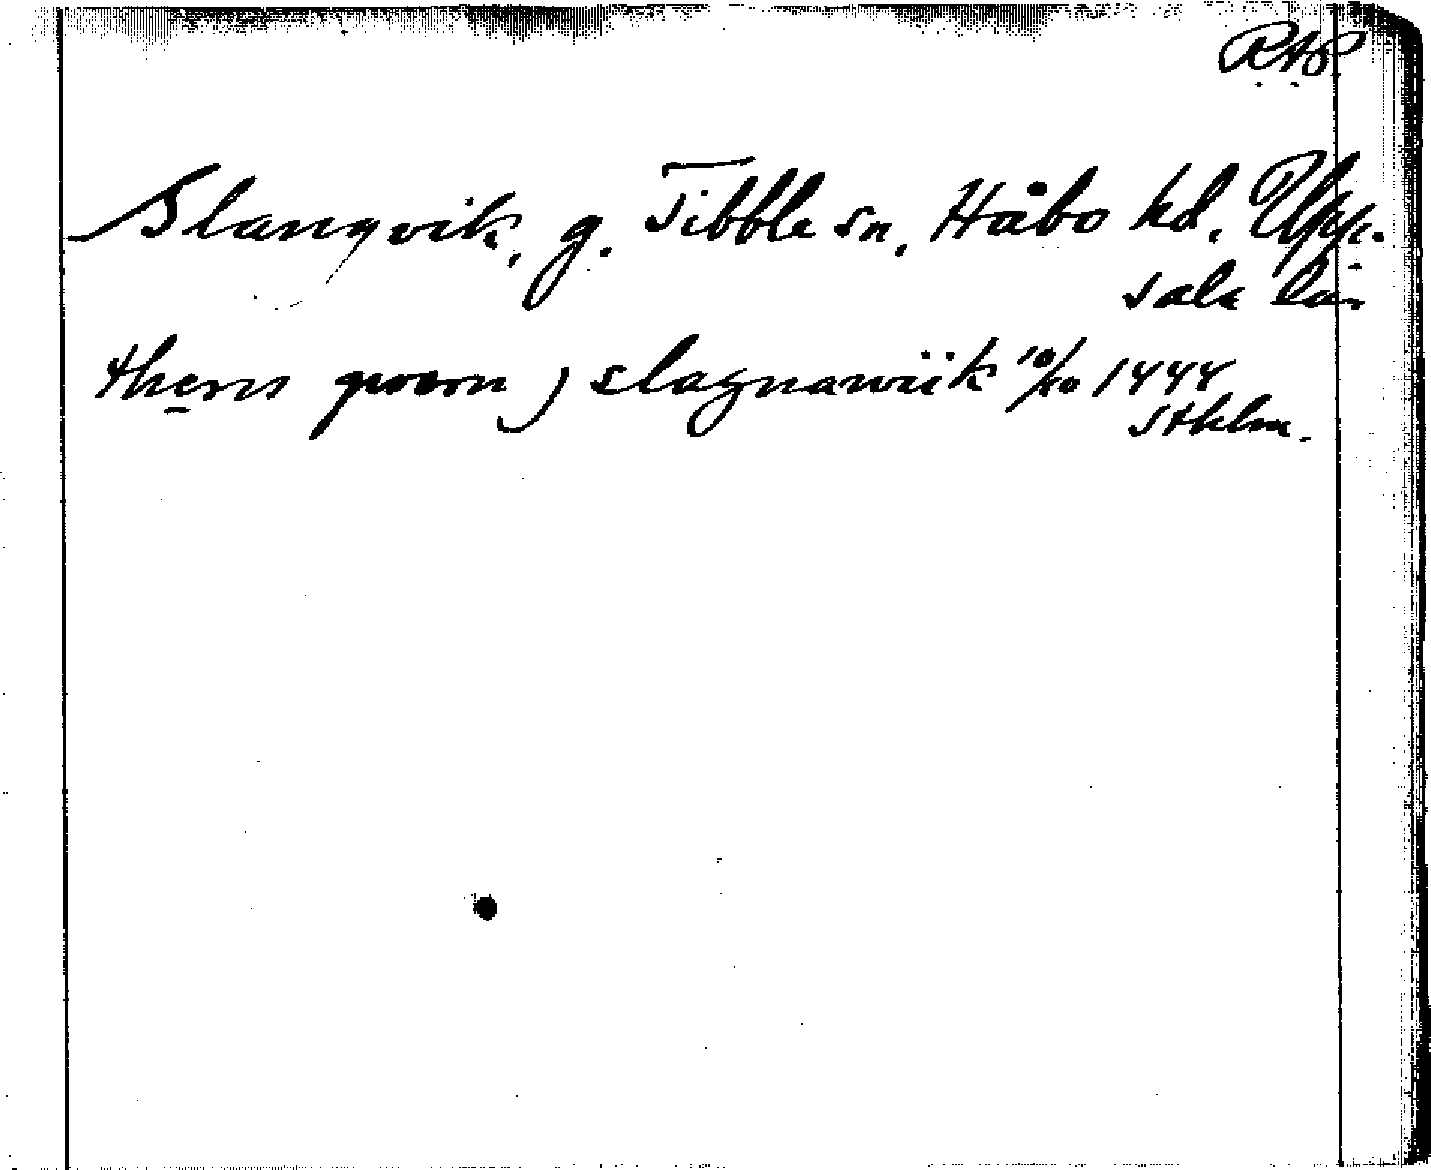 RAP.
Slangvik, g. Tibble sn, Håbo hd, Upp-
sala län
thens qvern j slagnawiik 10/10 1444
Sthlm.